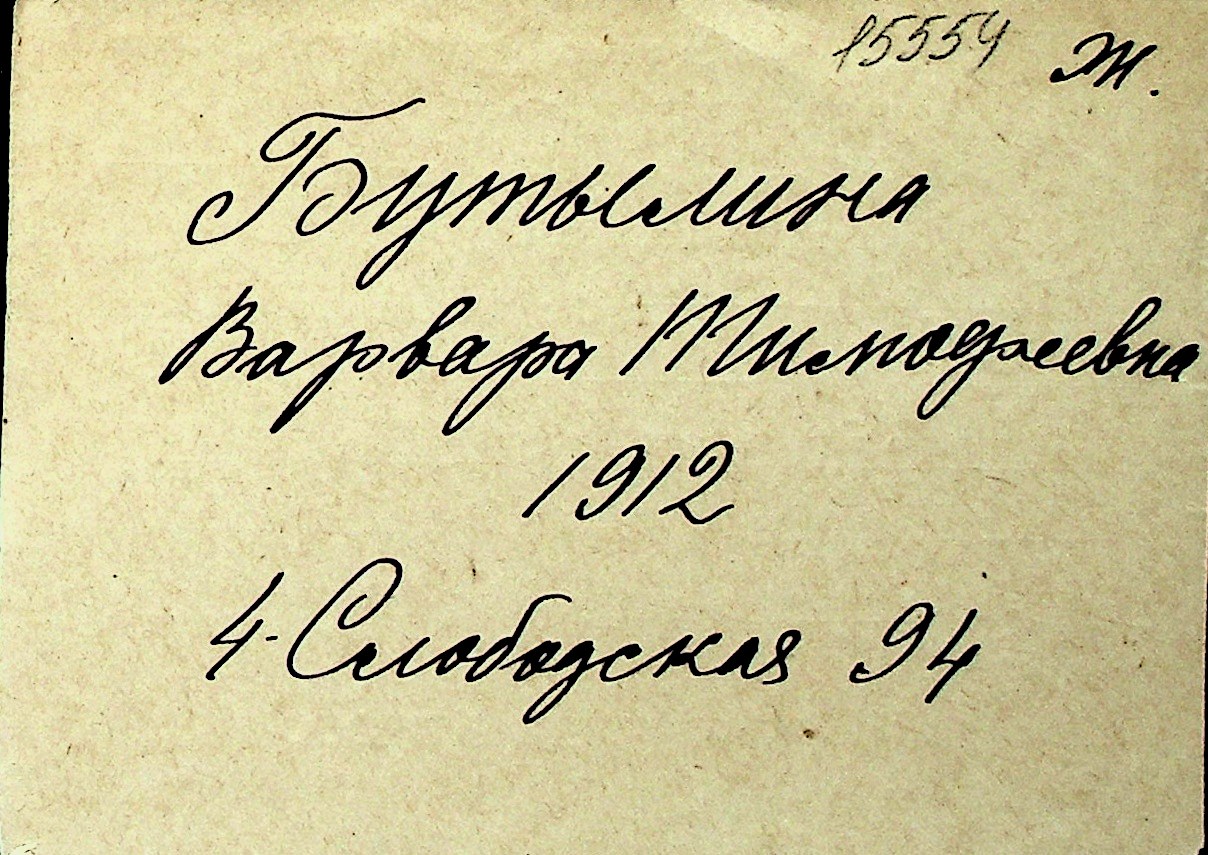 15554 Ж.
Бутылина
Варвара Тимофеевна
1912
4-Слободская 94